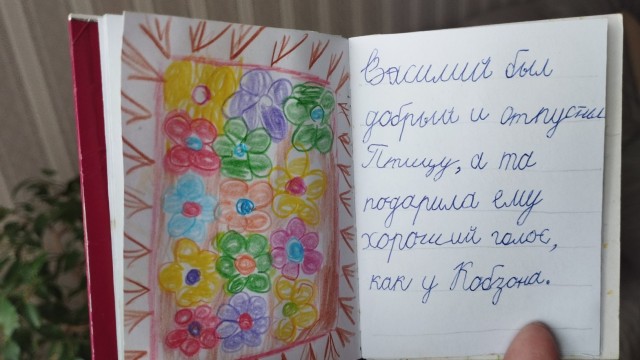 Василий был
добрый и отпустил
Птицу, а та
подарила ему
хороший голос,
как у Кобзона.